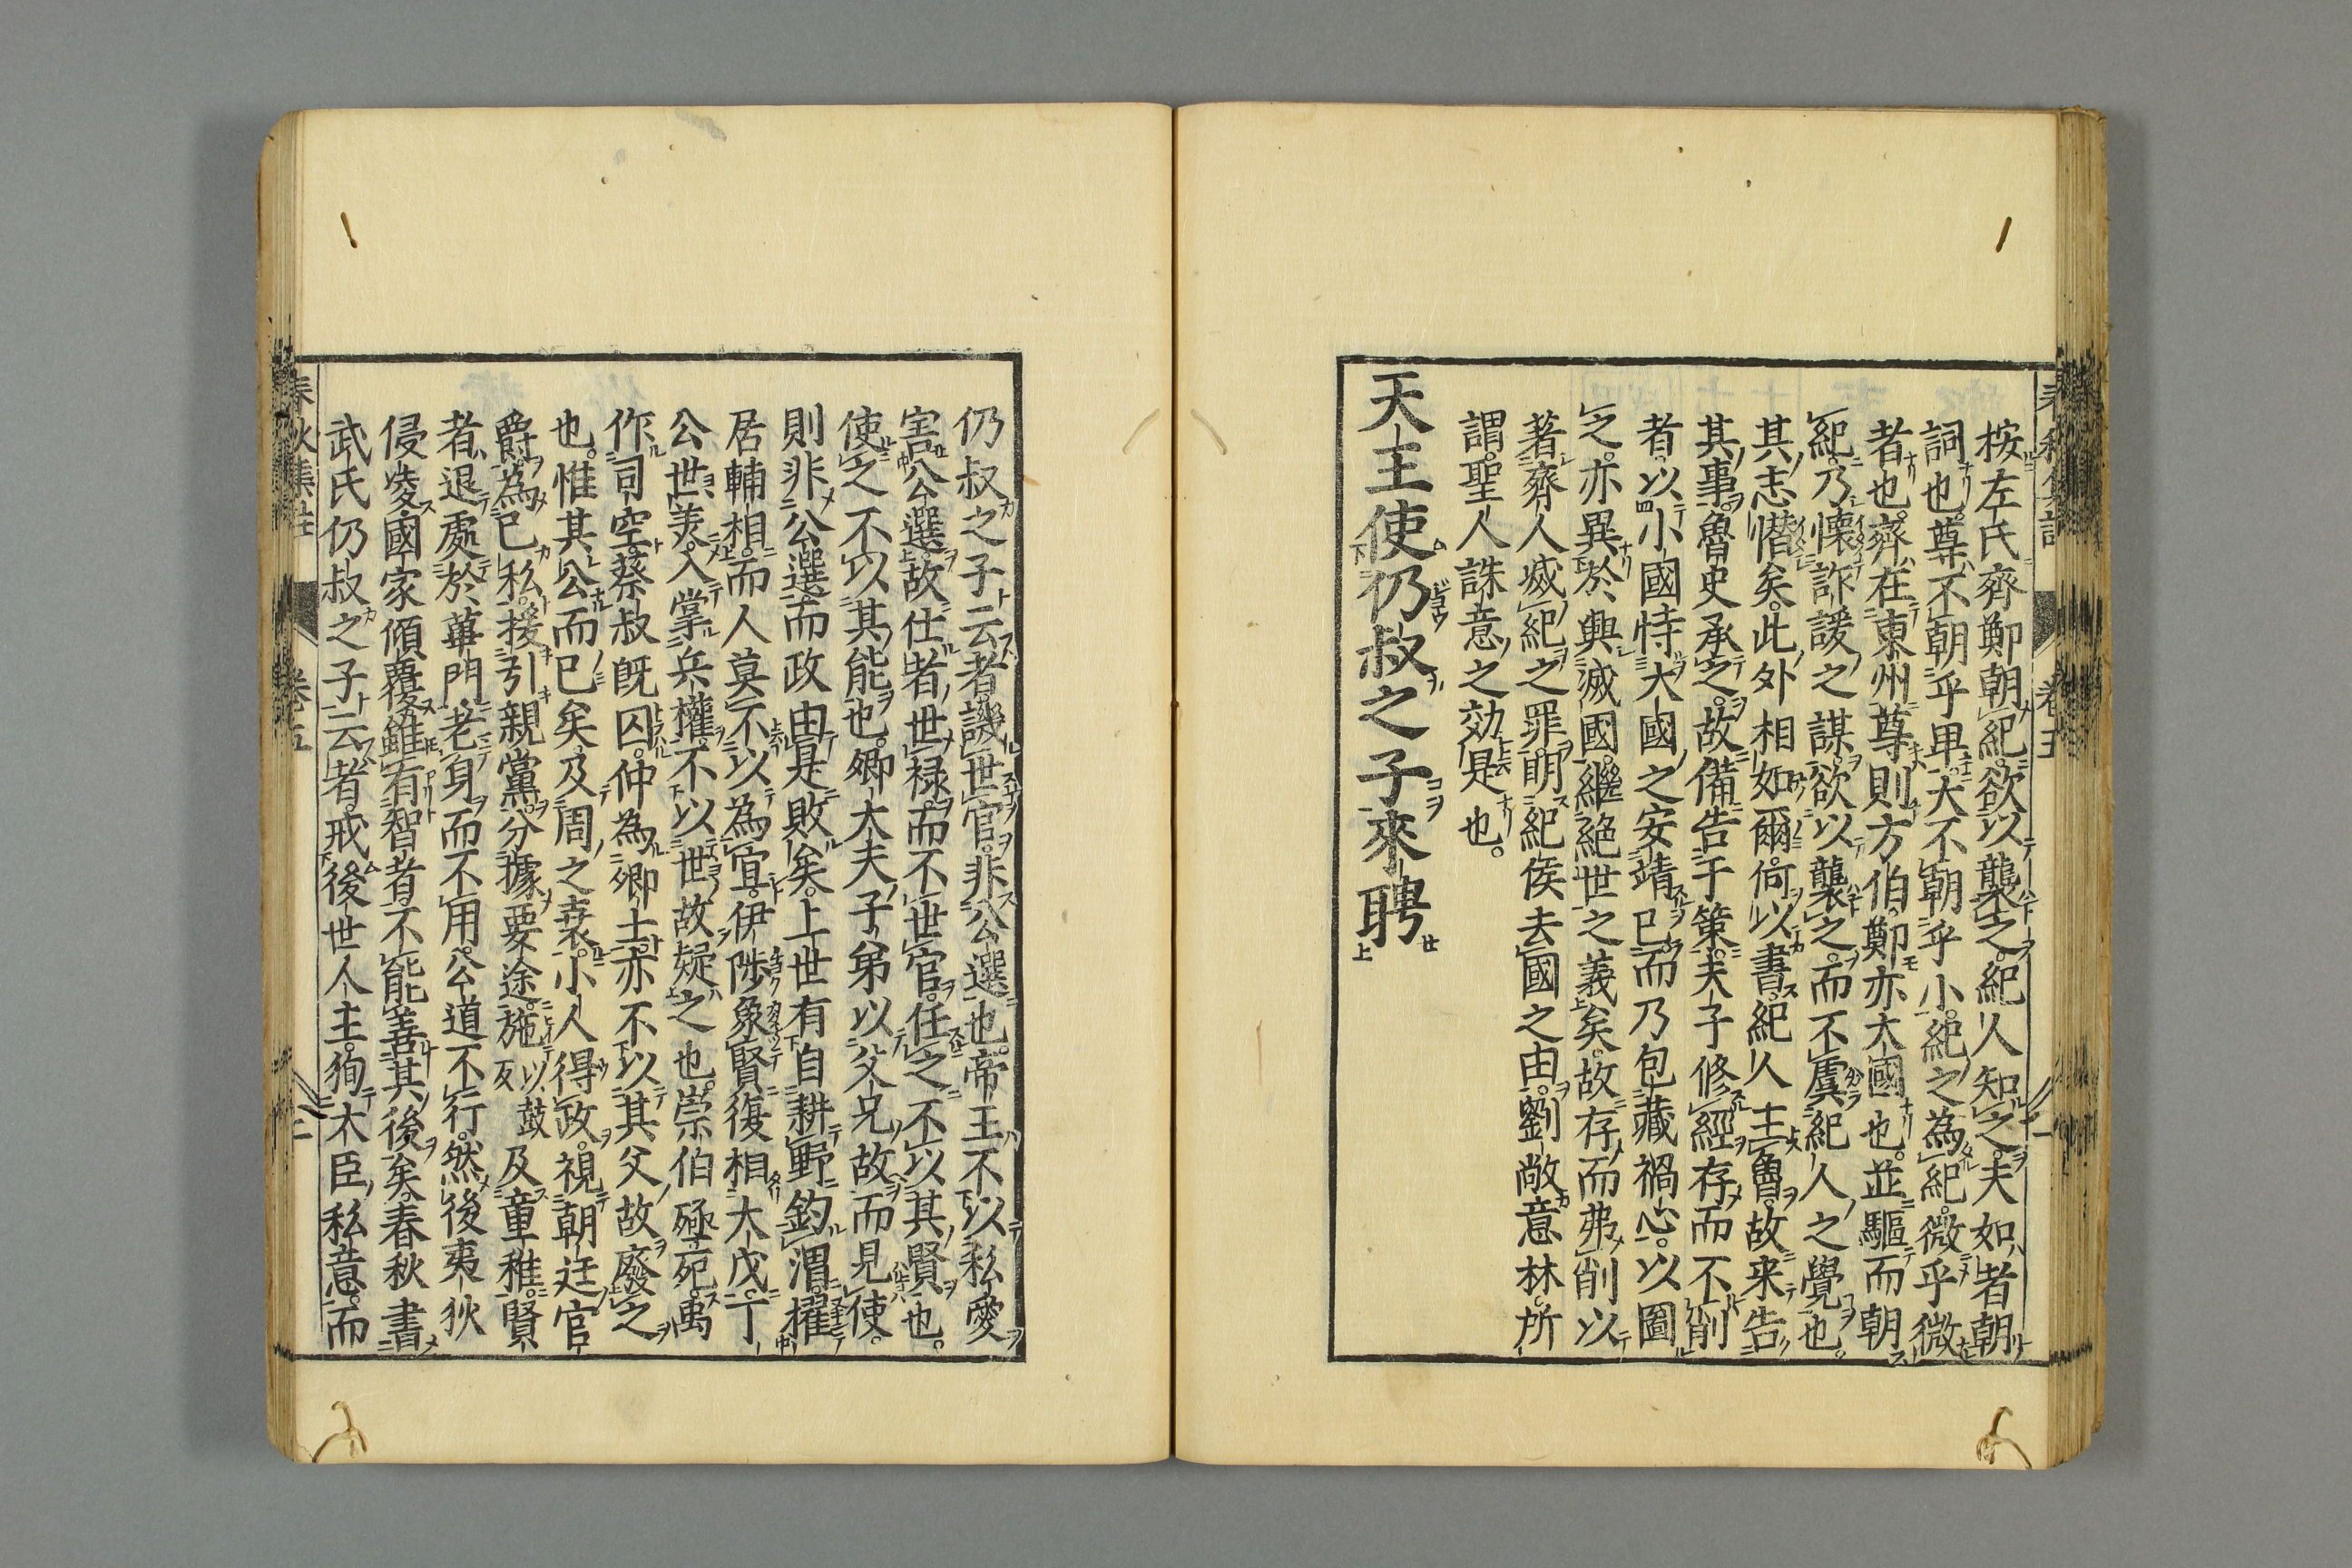 按左氏齊鄭朝紀欲以襲之紀人知之夫如者朝
詞也尊不朝乎卑大不朝乎小紀之為紀微乎微
者也齊在東州尊則方伯鄭亦大國也並驅而朝
紀乃懷詐諼之謀欲以襲之而不虞紀人之覺也
其志憯矣此外相如爾何以書紀人主魯故来告
其事魯史承之故備告于策夫子修經存而不削
者以小國恃大國之安靖己而乃包藏禍心以圖
之亦異於興滅國繼絶世之義矣故存而弗削以
著齊人滅紀之罪明紀侯去國之由劉敞意林所
謂聖人誅意之効是也
天王使仍叔之子來聘
仍叔之子云者譏世官非公選也帝王不以私愛
害公選故仕者世禄而不世官任之不以其賢也
使之不以其能也卿大夫子弟以父兄故而見使
則非公選而政由是敗矣上世有自耕野釣渭擢
居輔相而人莫不以為宜伊陟象賢復相大戊丁
公世美入掌兵權不以世故疑之也崇伯殛死禹
作司空蔡叔既囚仲為卿士亦不以其父故廢之
也惟其公而已矣及周之衰小人得政視朝廷官
爵為己私援引親黨分據要途施及童稚賢
者退處於蓽門老身而不用公道不行然後夷狄
侵凌國家傾覆雖有智者不能善其後矣春秋書
武氏仍叔之子云者戒後世人主狥大臣私意而
春秋集註 卷五